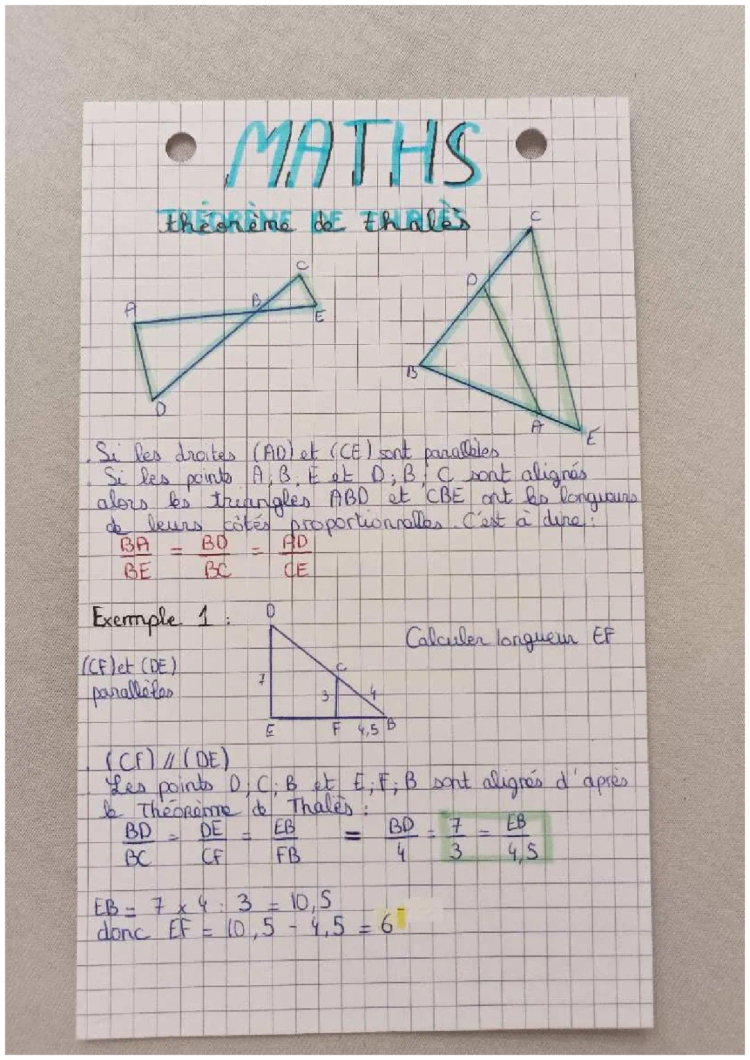 MATHS
théorème de thalès
C
D
B
A
E
C
A
B
E
D
. Si les droites (AD) et (CE) sont parallèles
. Si les points A, B, E et D, B, C sont alignés
alors les triangles ABD et CBE ont les longueurs
de leurs côtés proportionnalles. C'est à dire :
BA/BE = BD/BC = AD/CE
Exemple 1 :
D
Calculer longueur EF
(CF) et (DE)
parallèles
7
C
3
4
E
F
4,5
B
. (CF) // (DE)
Les points D, C, B et E, F, B sont alignés d'après
le Théorème de Thalès :
BD/BC = DE/CF = EB/FB = BD/4 = 7/3 = EB/4,5
EB = 7 x 4 : 3 = 10,5
donc EF = 10,5 - 4,5 = 6